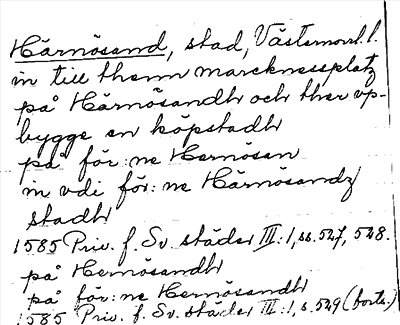 Härnösand, stad, Västernorrl. l.
in till them marcknessplatz
på Härnösandh och ther vp-
bygge en köpstadh
på för:ne Hernösen
in vdi för:ne Härnösandz
stadh
1585 Priv. f. Sv. städer III:1, ss. 527, 528.
på Hernösandh
på för:ne Hernösandh
1585 Priv. f. Sv. städer III:1, s. 529 (forts.)